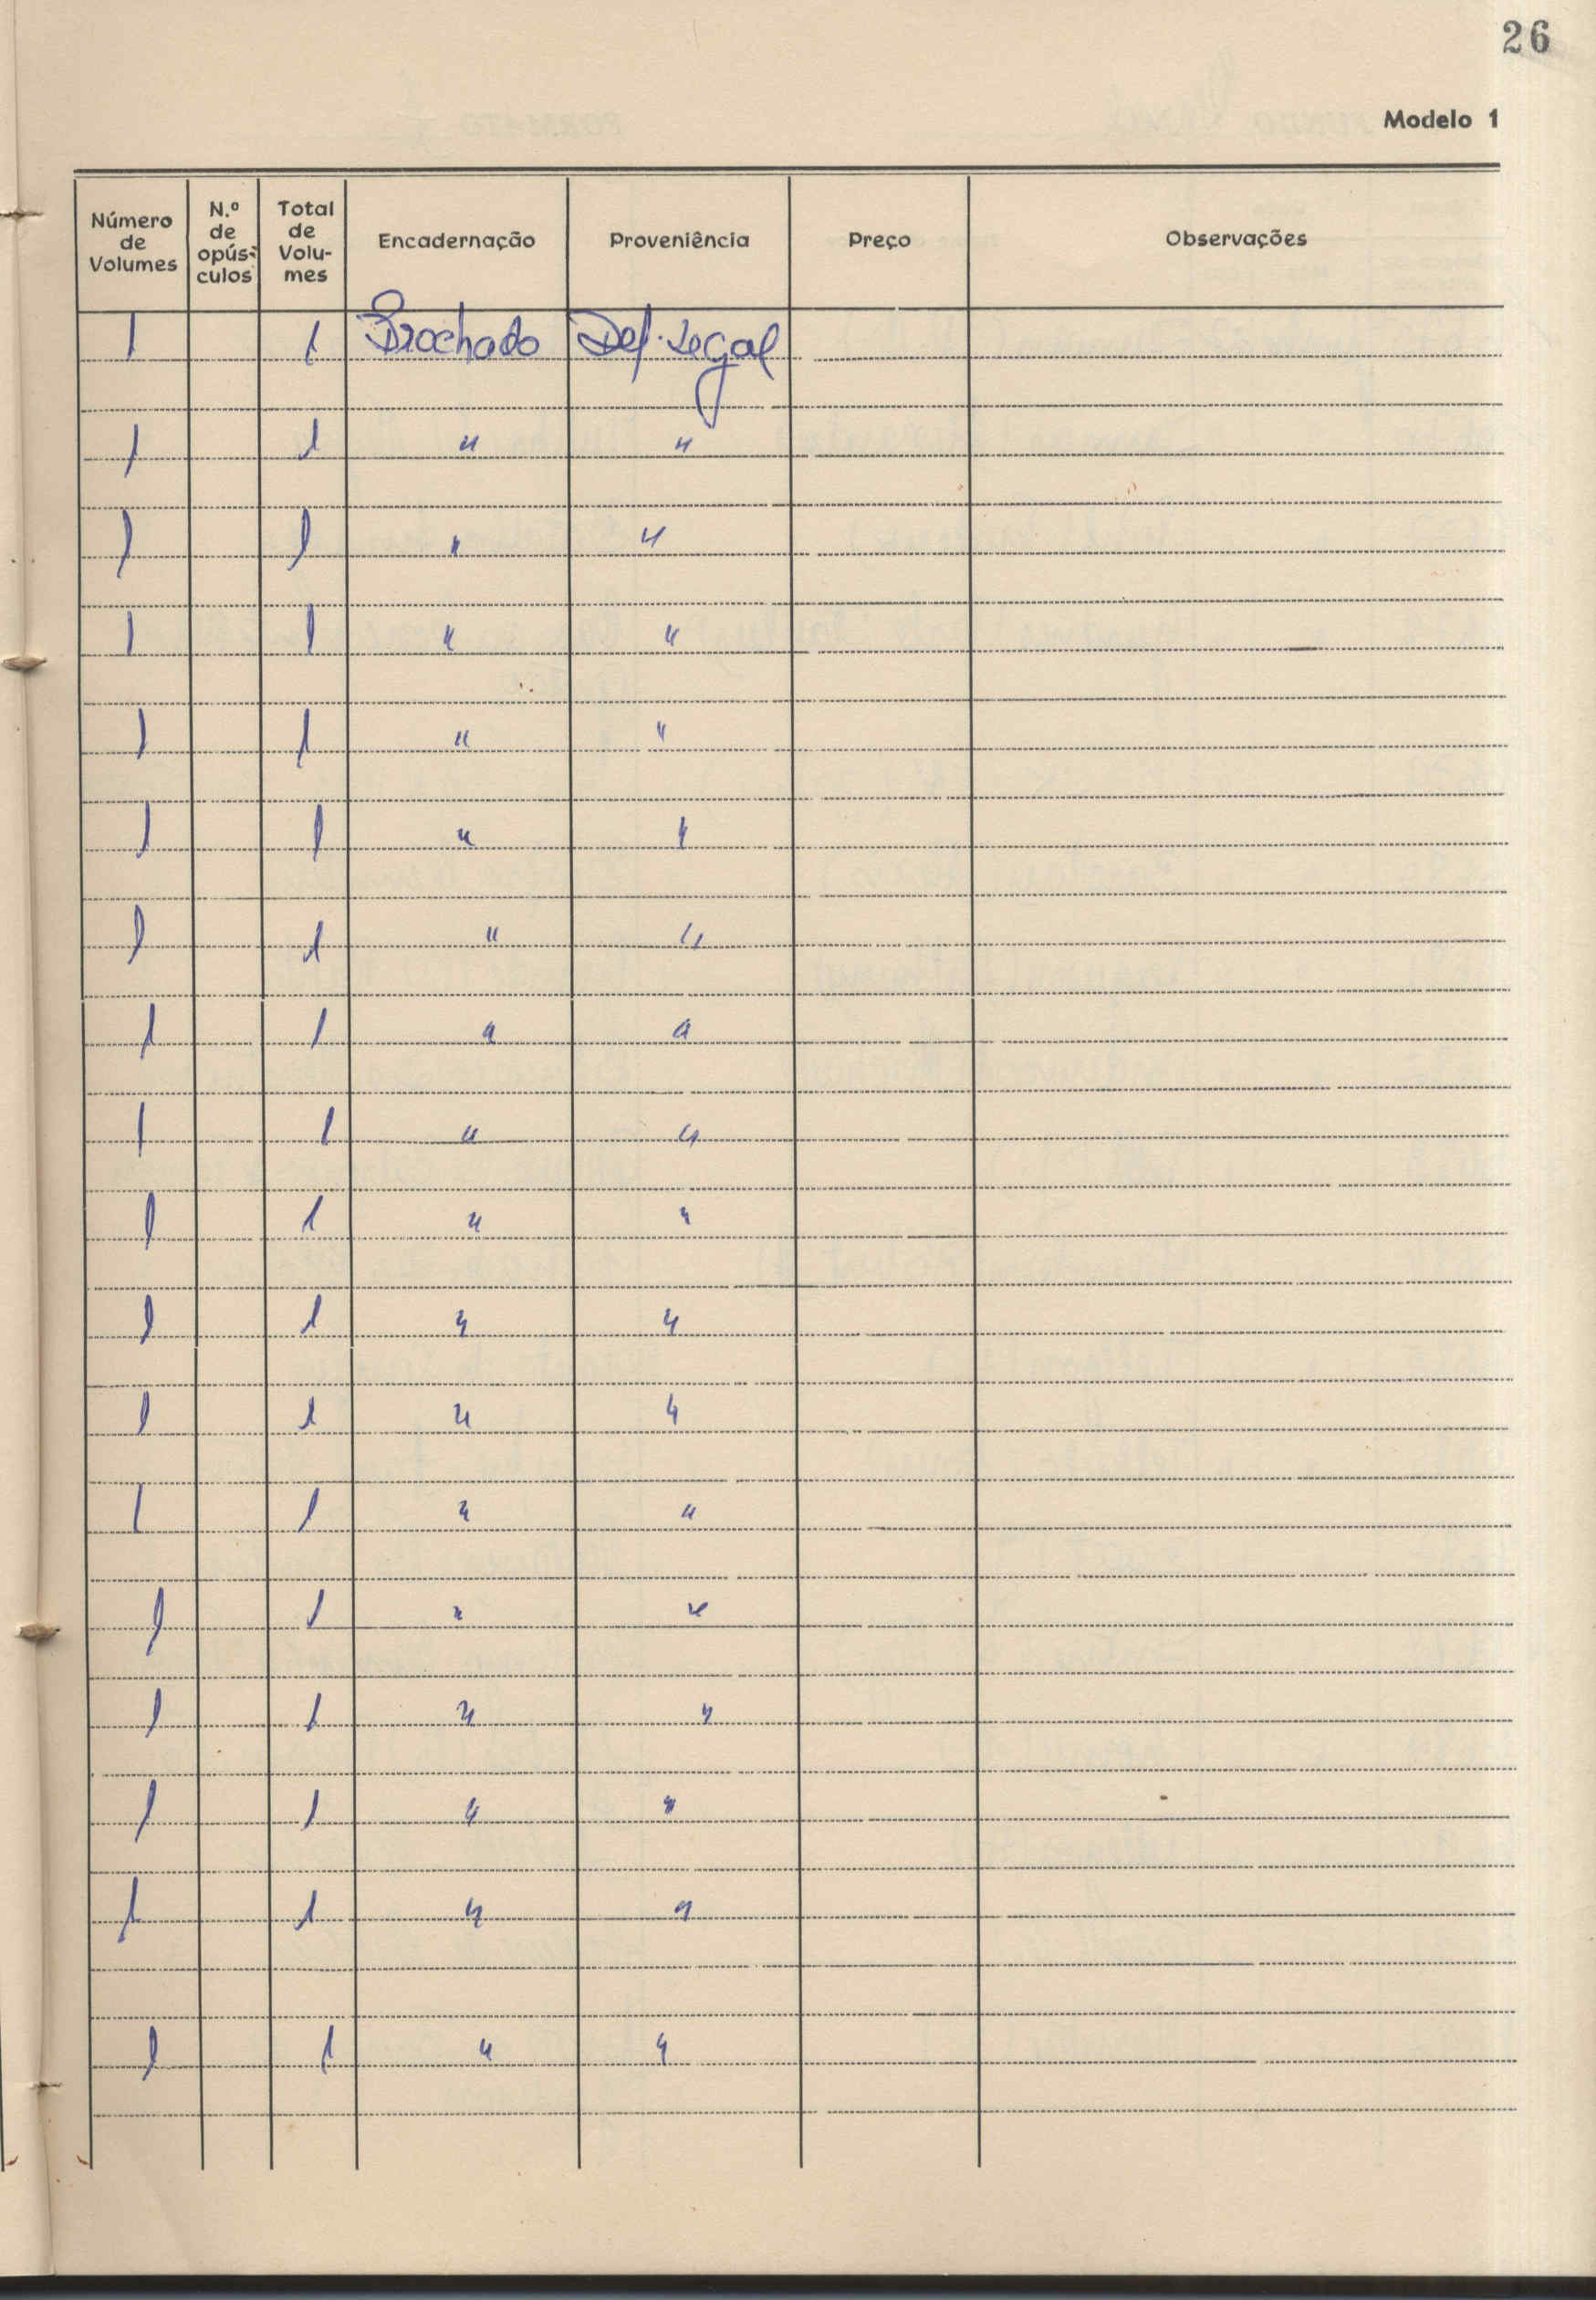 26
Modelo 1
Número de Volumes | N.º de opús-culos | Total de Volu-mes | Encadernação | Proveniência | Preço | Observações
1 | | 1 | Brochado | Dep. Legal
1 | | 1 | " | "
1 | | 1 | " | "
1 | | 1 | " | "
1 | | 1 | " | "
1 | | 1 | " | "
1 | | 1 | " | "
1 | | 1 | " | "
1 | | 1 | " | "
1 | | 1 | " | "
1 | | 1 | " | "
1 | | 1 | " | "
1 | | 1 | " | "
1 | | 1 | " | "
1 | | 1 | " | "
1 | | 1 | " | "
1 | | 1 | " | "
1 | | 1 | " | "